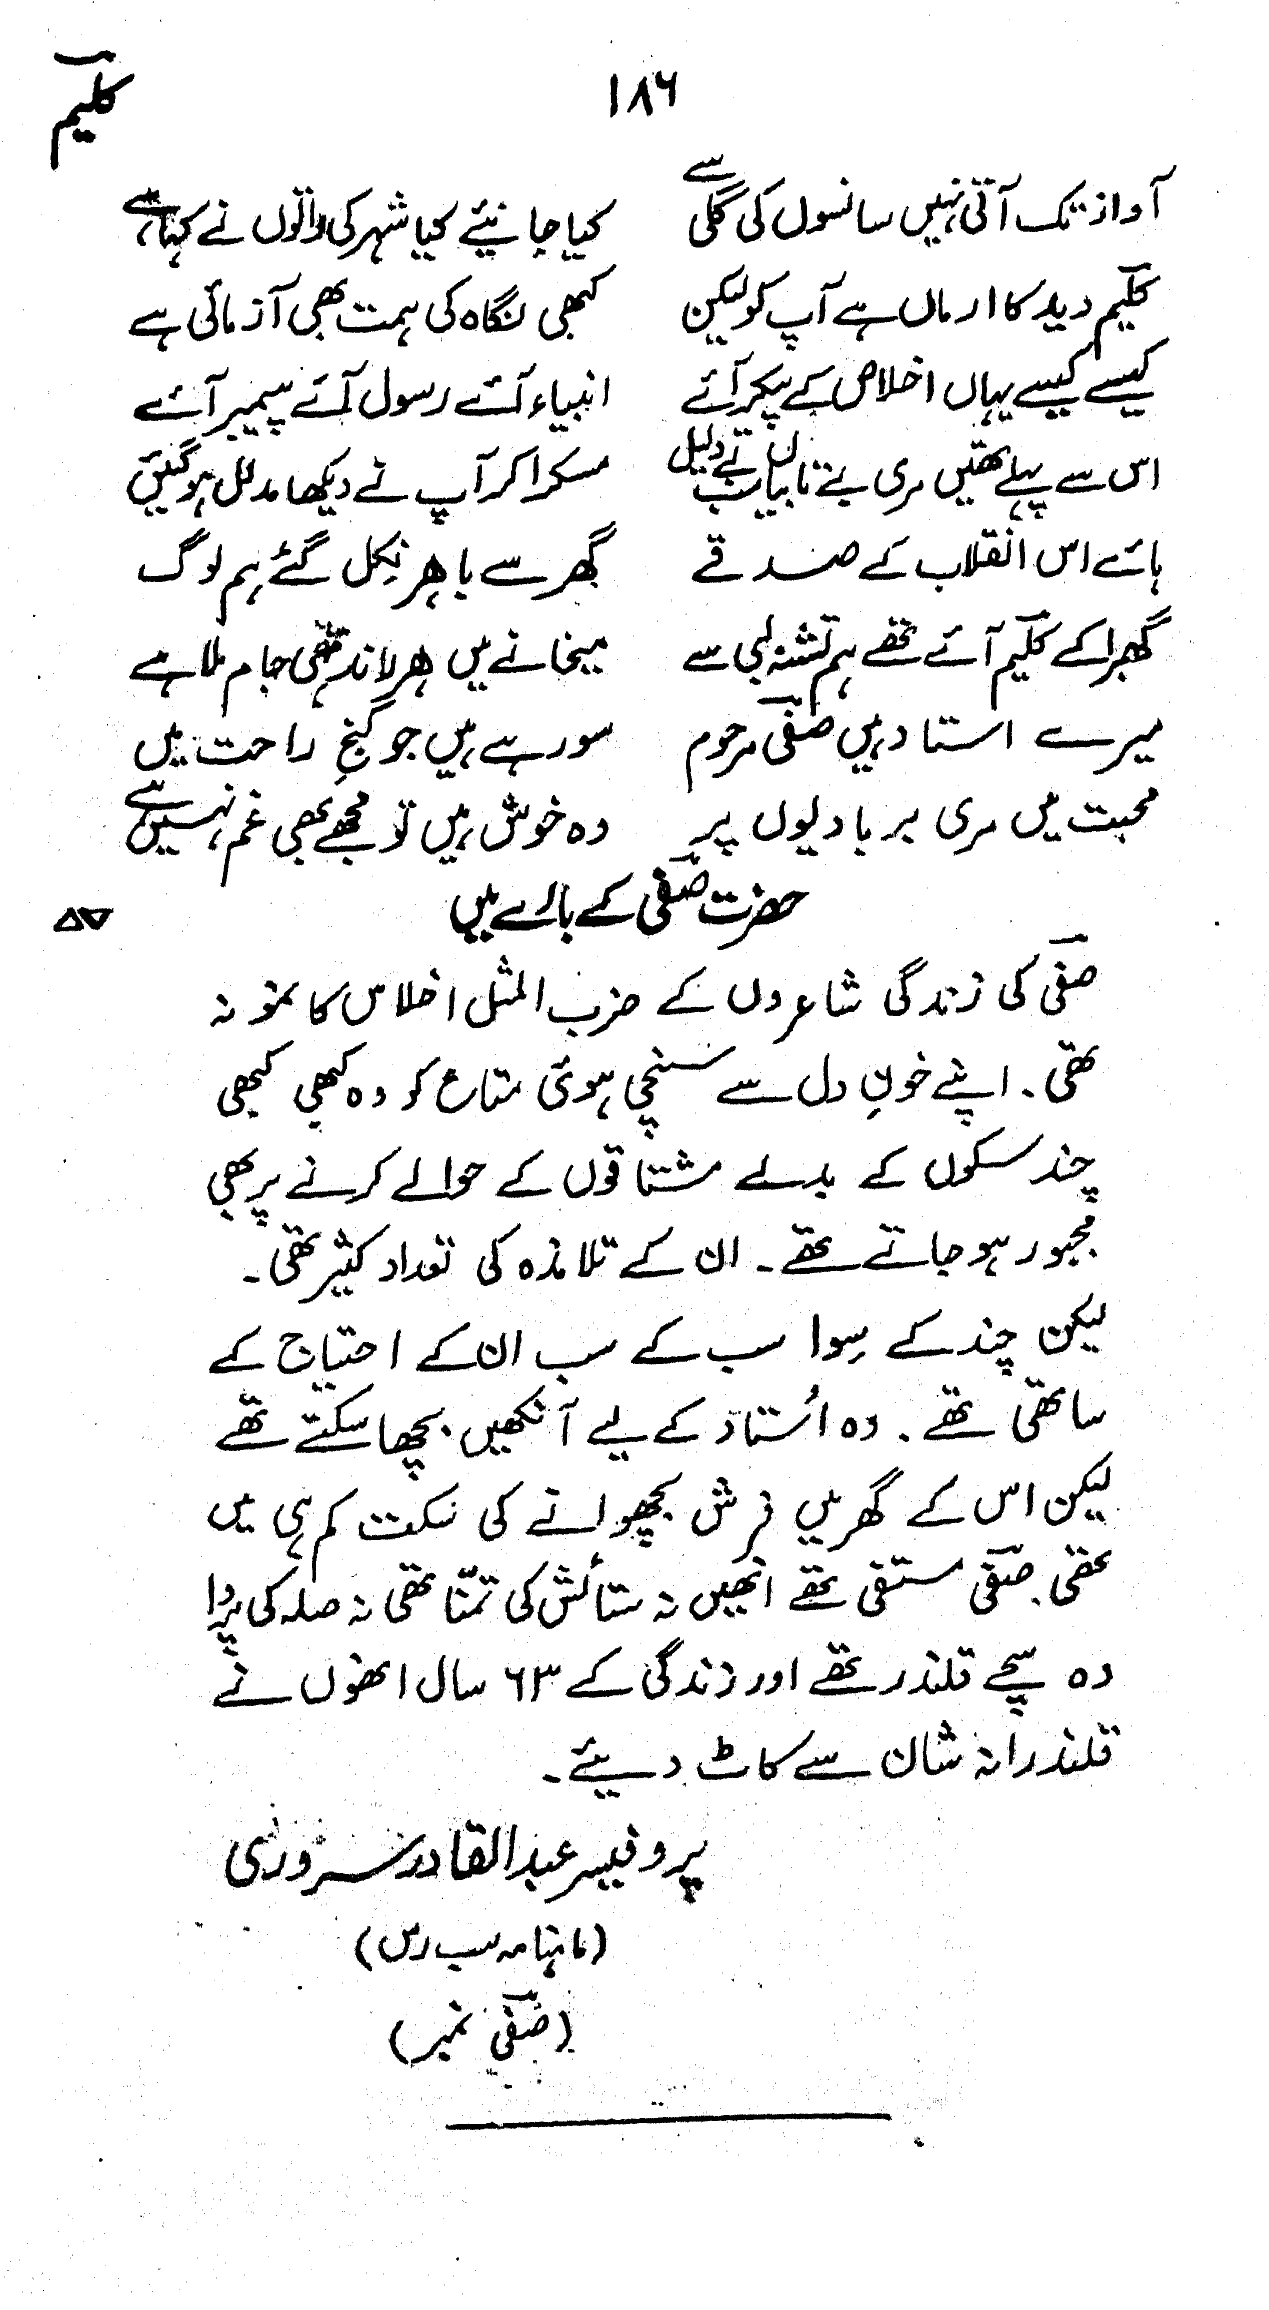 کلیم
۱۸۶
آواز تک آتی نہیں سانسوں کی گلی سے کیا جانیئے کیا شہر کی راتوں نے کہا ہے
کلیم دید کا ارماں ہے آپ کو لیکن کبھی نگاہ کی ہمت بھی آزمائی ہے
کیسے کیسے یہاں اخلاص کے پیکر آئے انبیاء آئے رسول آئے پیمبر آئے
اس سے پہلے تھیں مری بے تابیاں بے دلیل مسکرا کر آپ نے دیکھا مدلل ہوگئیں
ہائے اس انقلاب کے صدقے گھر سے باہر نکل گئے ہم لوگ
گھبرا کے کلیم آئے تھے ہم تشنہ لبی سے میخانے میں ہر جام ملا ہے
میرے استاد ہیں صفی مرحوم سو رہے ہیں جو گنجِ راحت میں
محبت میں مری بربادیوں پر وہ خوش ہیں تو مجھے بھی غم نہیں ہے
حضرت صفی کے بارے میں
صفی کی زندگی شاعروں کے ضرب المثل اخلاس کا نمونہ
تھی۔ اپنے خونِ دل سے سینچی ہوئی متاع کو وہ کبھی کبھی
چند سکوں کے بدلے مشتاقوں کے حوالے کرنے پر بھی
مجبور ہوجاتے تھے۔ ان کے تلامذہ کی تعداد کثیر تھی۔
لیکن چند کے سِوا سب کے سب ان کے احتیاج کے
ساتھی تھے۔ وہ اُستاد کے لیے آنکھیں بچھا سکتے تھے
لیکن اس کے گھر میں فرش بچھوانے کی سکت کم ہی میں
تھی۔ صفی مستغنی تھے انھیں نہ ستائش کی تمنّا تھی نہ صلہ کی پروا
وہ سچے قلندر تھے اور زندگی کے ۶۳ سال انھوں نے
قلندرانہ شان سے کاٹ دیئے۔
پروفیسر عبدالقادر سروری
(ماہنامہ سب رس)
(صفی نمبر)